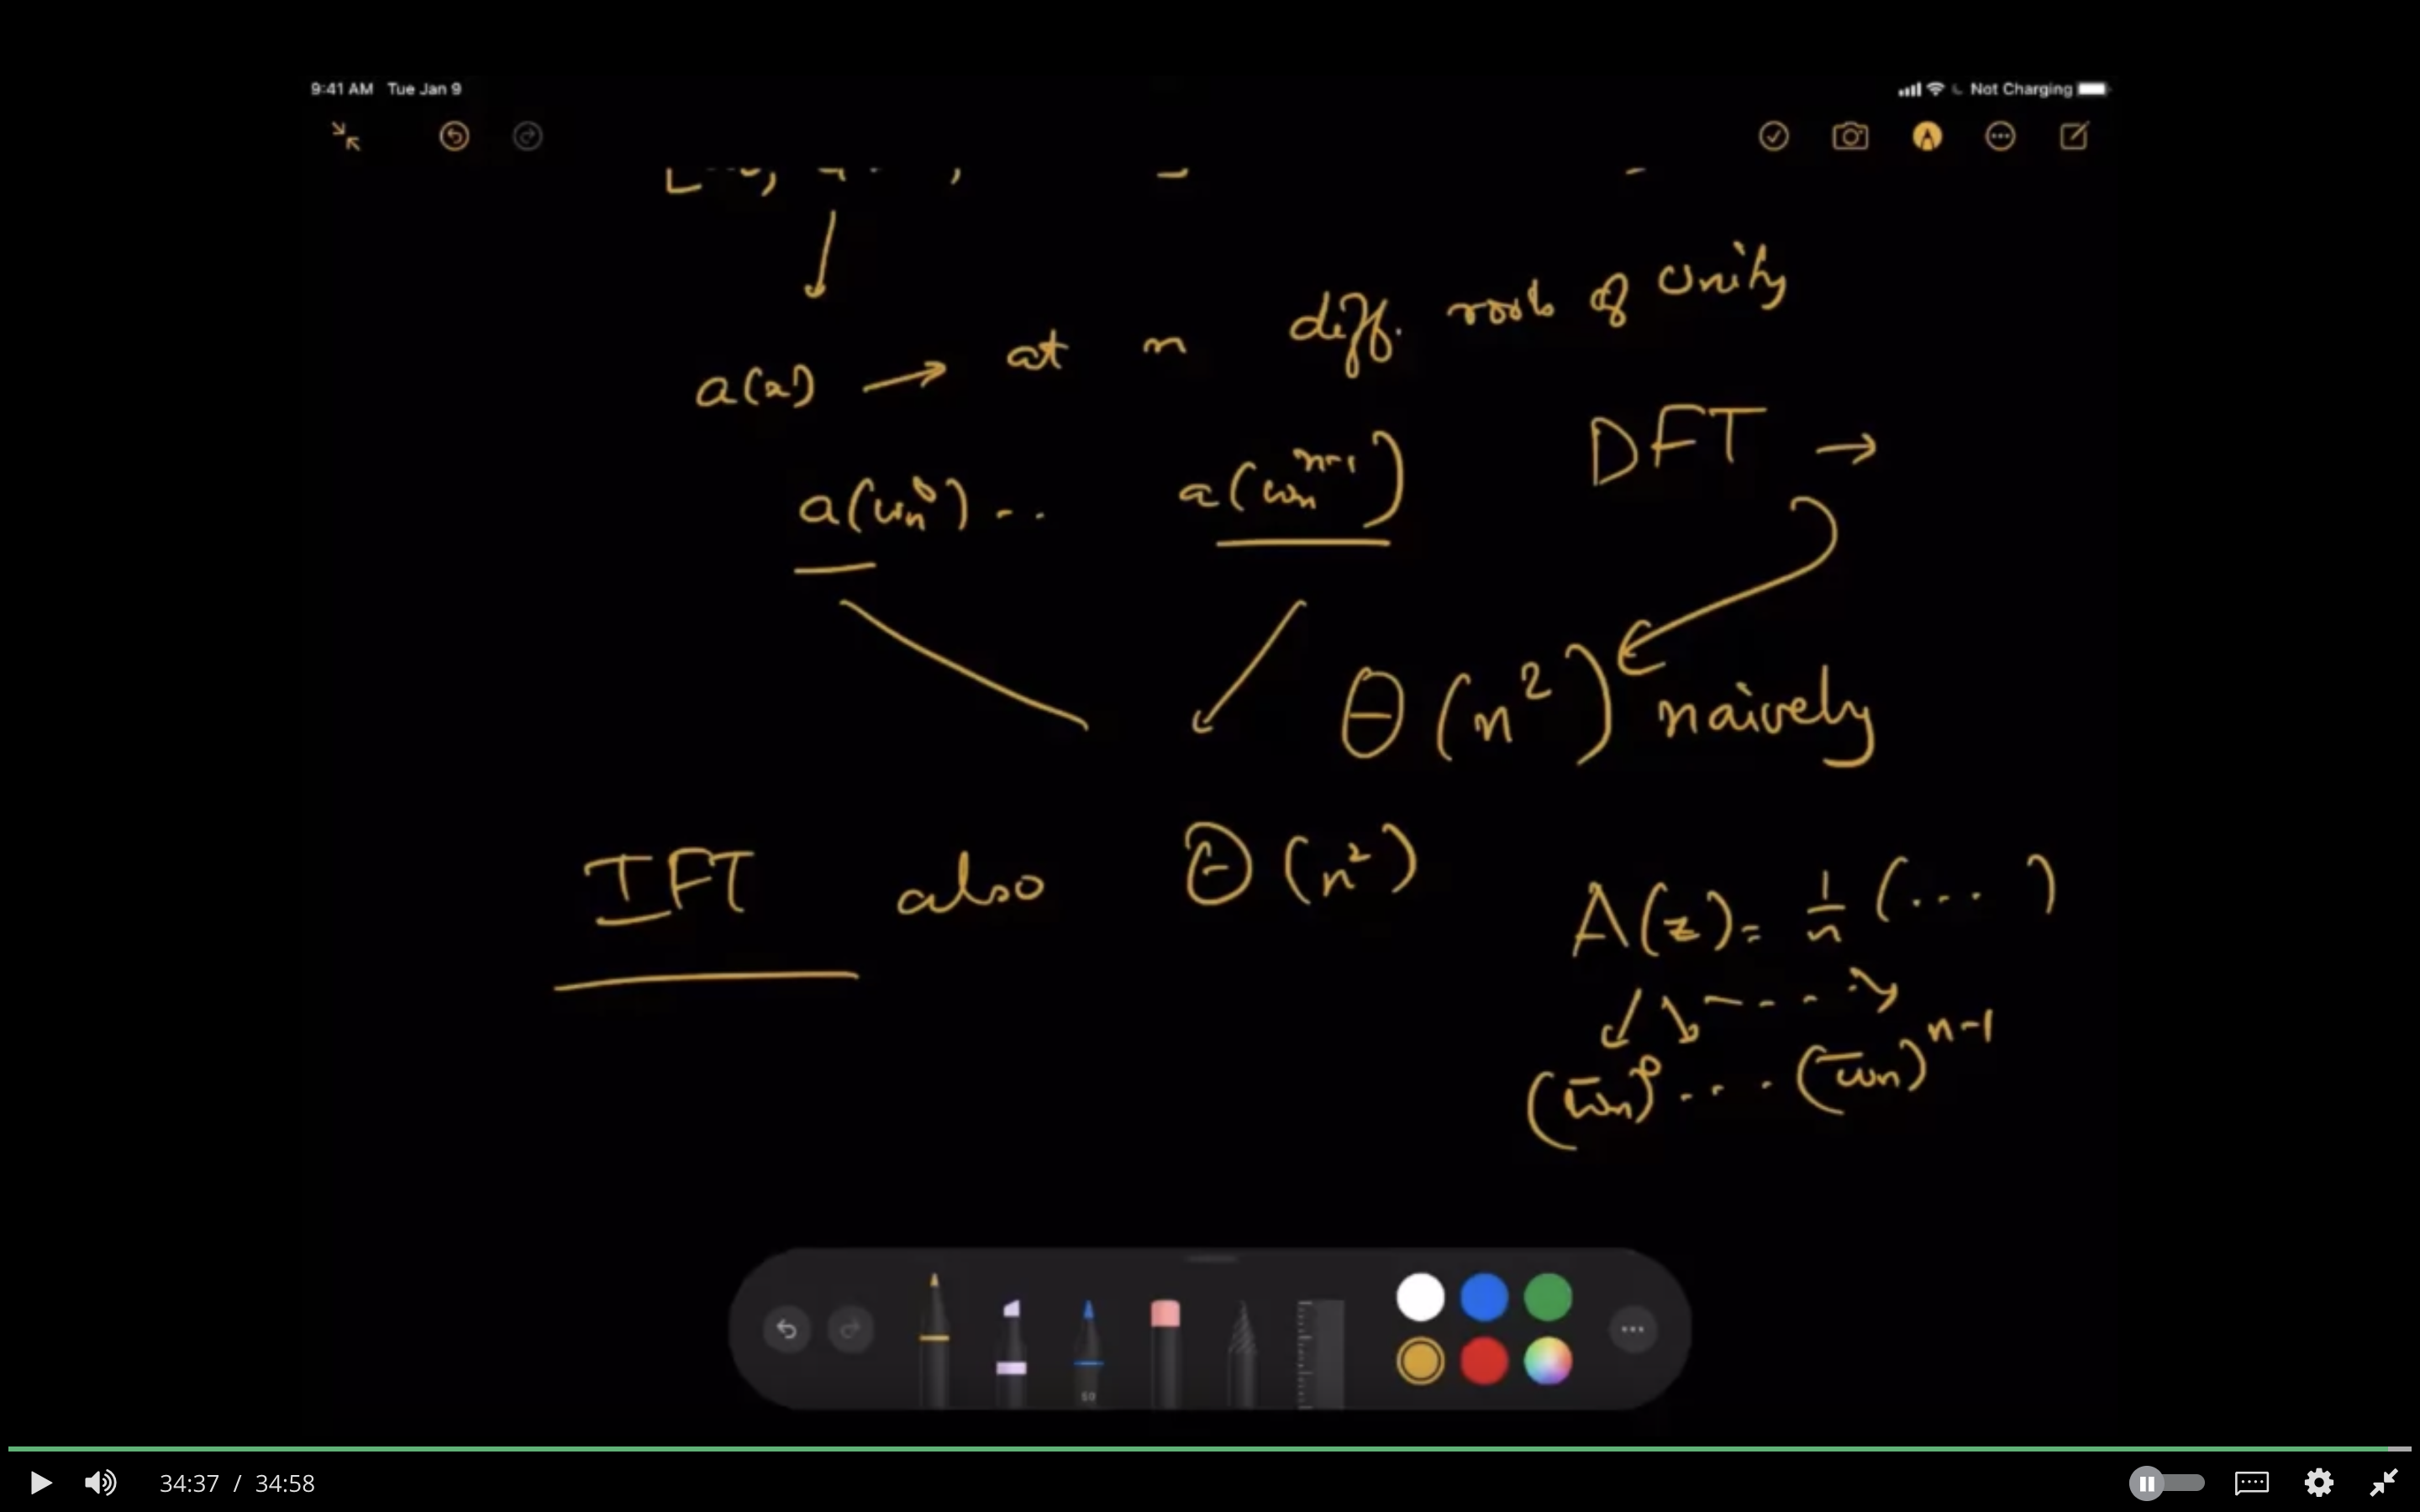 9:41 AM Tue Jan 9
Not Charging
a(x) → at n diff. roots of Unity
DFT →
a(ωₙ⁰) .. a(ωₙⁿ⁻¹)
Θ(n²) naively
IFT also Θ(n²)
A(z) = 1/n (... )
(ω̅ₙ)⁰ .... (ω̅ₙ)ⁿ⁻¹
50
34:37 / 34:58